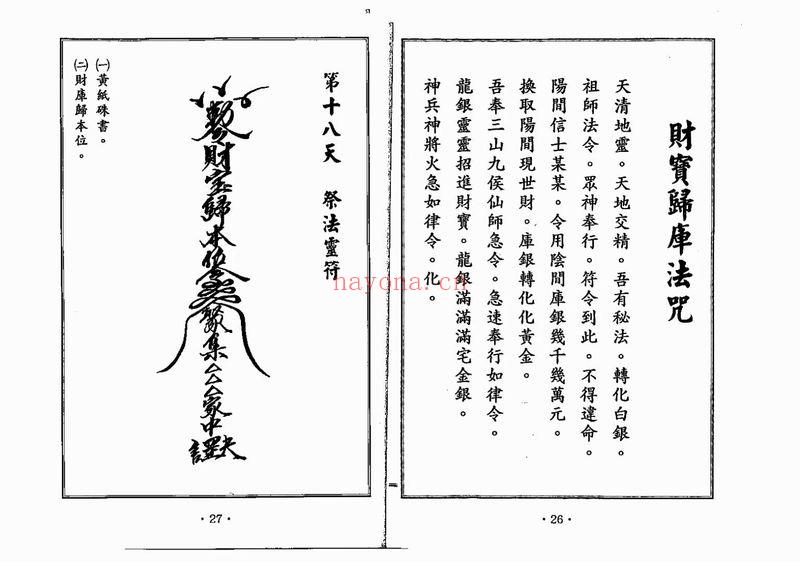 財寶歸庫法咒
天清地靈。天地交精。吾有秘法。轉化白銀。
祖師法令。眾神奉行。符令到此。不得違命。
陽間信士某某。令用陰間庫銀幾千幾萬元。
換取陽間現世財。庫銀轉化化黃金。
吾奉三山九侯仙師急令。急速奉行如律令。
龍銀靈靈招進財寶。龍銀滿滿滿宅金銀。
神兵神將火急如律令。化。
·26·
第十八天 祭法靈符
財宝歸本位
聚集
家中
㈠黃紙硃書。
㈡財庫歸本位。
·27·
hayona.cn